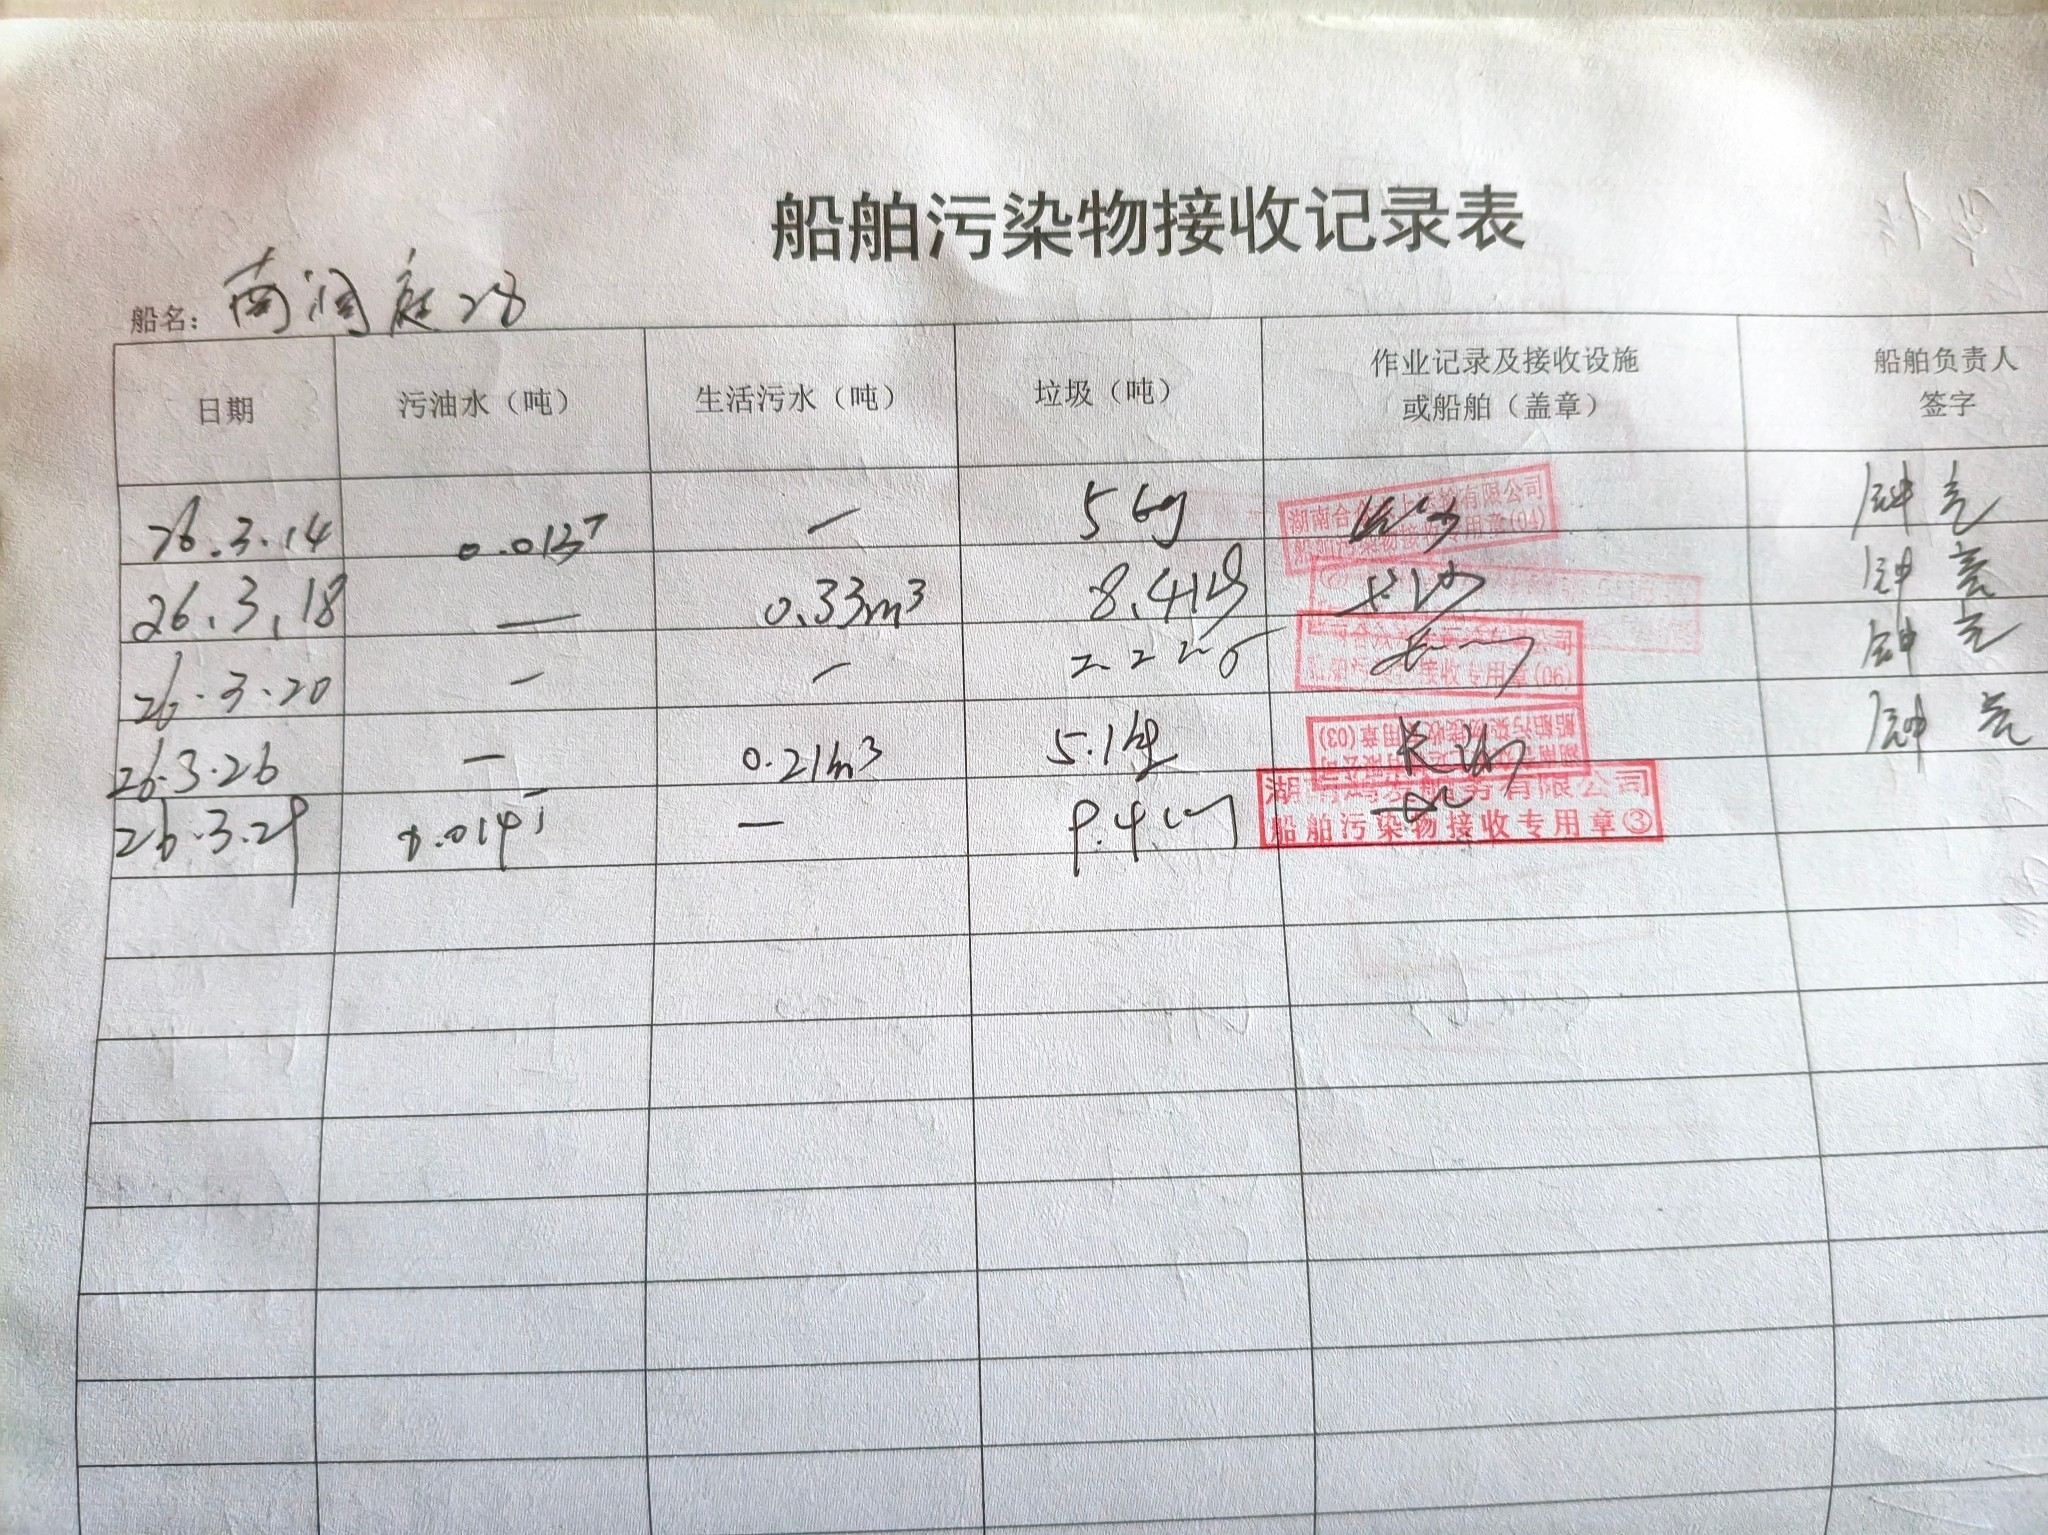 船舶污染物接收记录表
船名：南洞庭28
日期 污油水（吨） 生活污水（吨） 垃圾（吨） 作业记录及接收设施或船舶（盖章） 船舶负责人签字
26.3.14 — 湖南合 有限公司 船舶污染物接收专用章(04) 钟亮
26.3.18 — 0.33m³ 8.4 长沙 钟亮
26.3.20 — — 2.2 接收专用章(06) 钟亮
26.3.26 — 0.21m³ 5.1 长沙 船舶污染物接收专用章(03) 钟亮
26.3.29 — 9.4 湖南 船务有限公司 船舶污染物接收专用章③